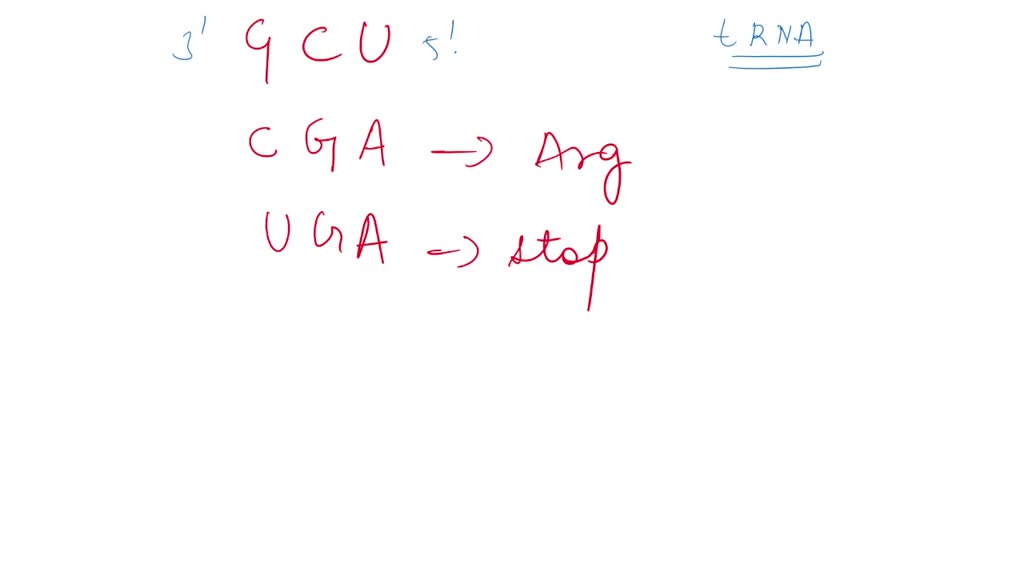 3' GCU 5' tRNA
CGA → Arg
UGA → stop